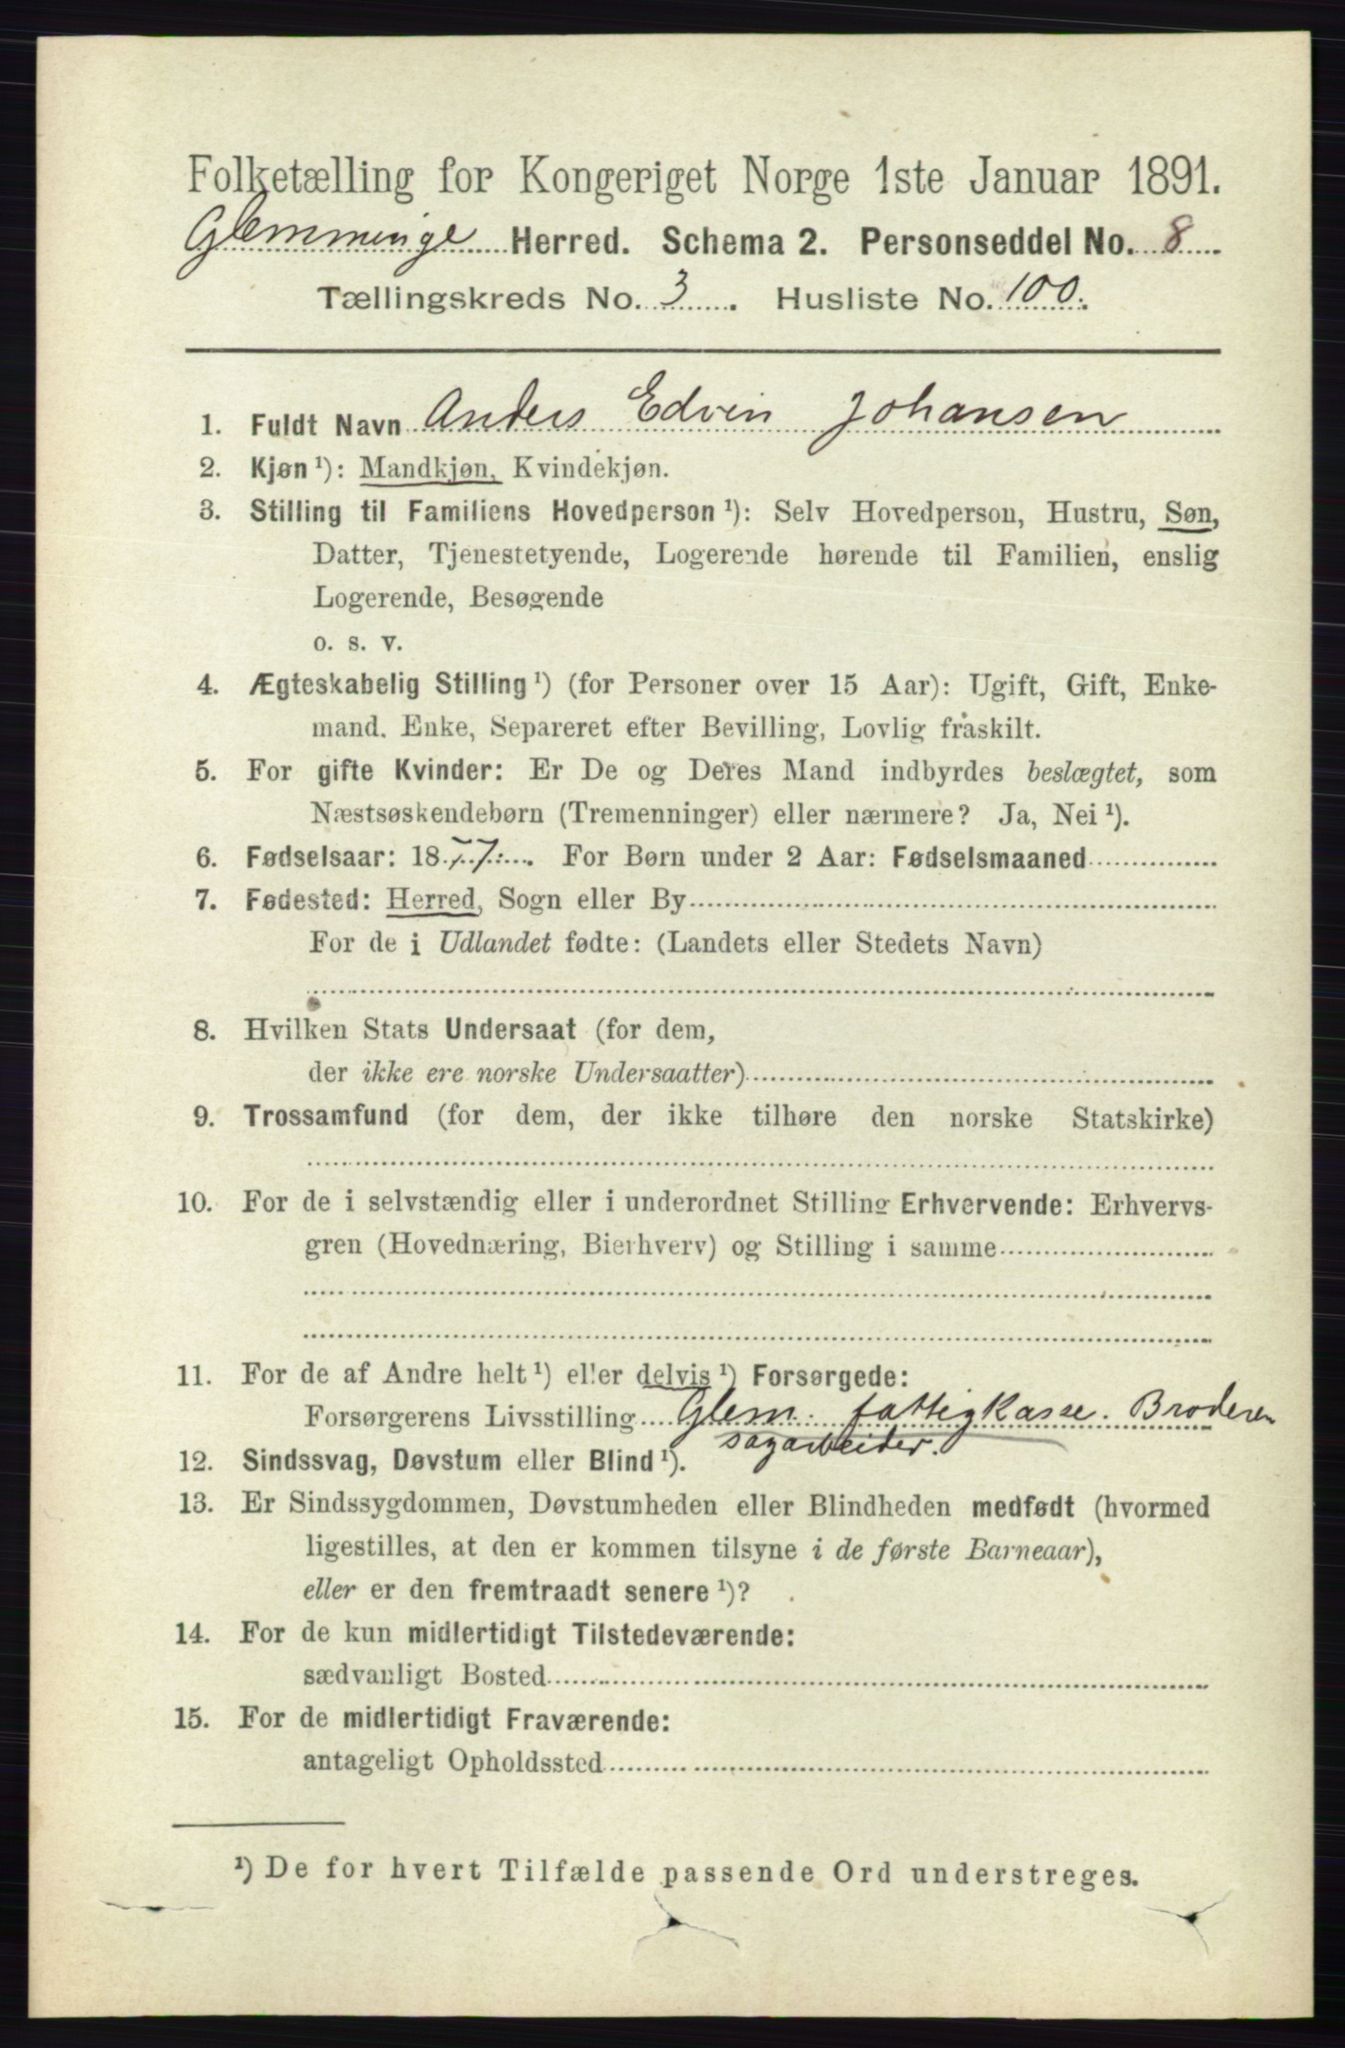 Folketælling for Kongeriget Norge 1ste Januar 1891.
Glemminge Herred. Schema 2. Personseddel No. 8
Tællingskreds No. 3. Husliste No. 100.
1. Fuldt Navn Anders Edvin Johansen
2. Kjøn ¹): Mandkjøn, Kvindekjøn.
3. Stilling til Familiens Hovedperson ¹): Selv Hovedperson, Hustru, Søn,
Datter, Tjenestetyende, Logerende hørende til Familien, enslig
Logerende, Besøgende
o. s. v.
4. Ægteskabelig Stilling ¹) (for Personer over 15 Aar): Ugift, Gift, Enke-
mand. Enke, Separeret efter Bevilling, Lovlig fraskilt.
5. For gifte Kvinder: Er De og Deres Mand indbyrdes beslægtet, som
Næstsøskendebørn (Tremenninger) eller nærmere? Ja, Nei ¹).
6. Fødselsaar: 1877. For Børn under 2 Aar: Fødselsmaaned
7. Fødested: Herred, Sogn eller By
For de i Udlandet fødte: (Landets eller Stedets Navn)
8. Hvilken Stats Undersaat (for dem,
der ikke ere norske Undersaatter)
9. Trossamfund (for dem, der ikke tilhøre den norske Statskirke)
10. For de i selvstændig eller i underordnet Stilling Erhvervende: Erhvervs-
gren (Hovednæring, Bierhverv) og Stilling i samme
11. For de af Andre helt ¹) eller delvis ¹) Forsørgede:
Forsørgerens Livsstilling Glem. fattigkasse. Broderen
sagarbeider.
12. Sindssvag, Døvstum eller Blind ¹).
13. Er Sindssygdommen, Døvstumheden eller Blindheden medfødt (hvormed
ligestilles, at den er kommen tilsyne i de første Barneaar),
eller er den fremtraadt senere ¹)?
14. For de kun midlertidigt Tilstedeværende:
sædvanligt Bosted
15. For de midlertidigt Fraværende:
antageligt Opholdssted
¹) De for hvert Tilfælde passende Ord understreges.